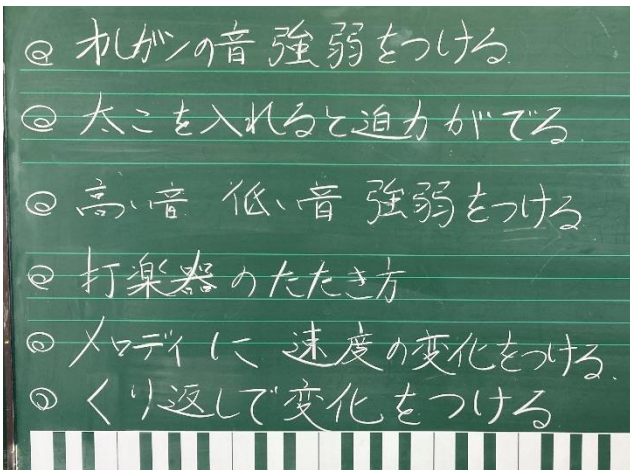 ◎ オルガンの音 強弱をつける
◎ 太こを入れると迫力がでる
◎ 高い音 低い音 強弱をつける
◎ 打楽器のたたき方
◎ メロディに 速度の変化をつける
◎ くり返しで変化をつける